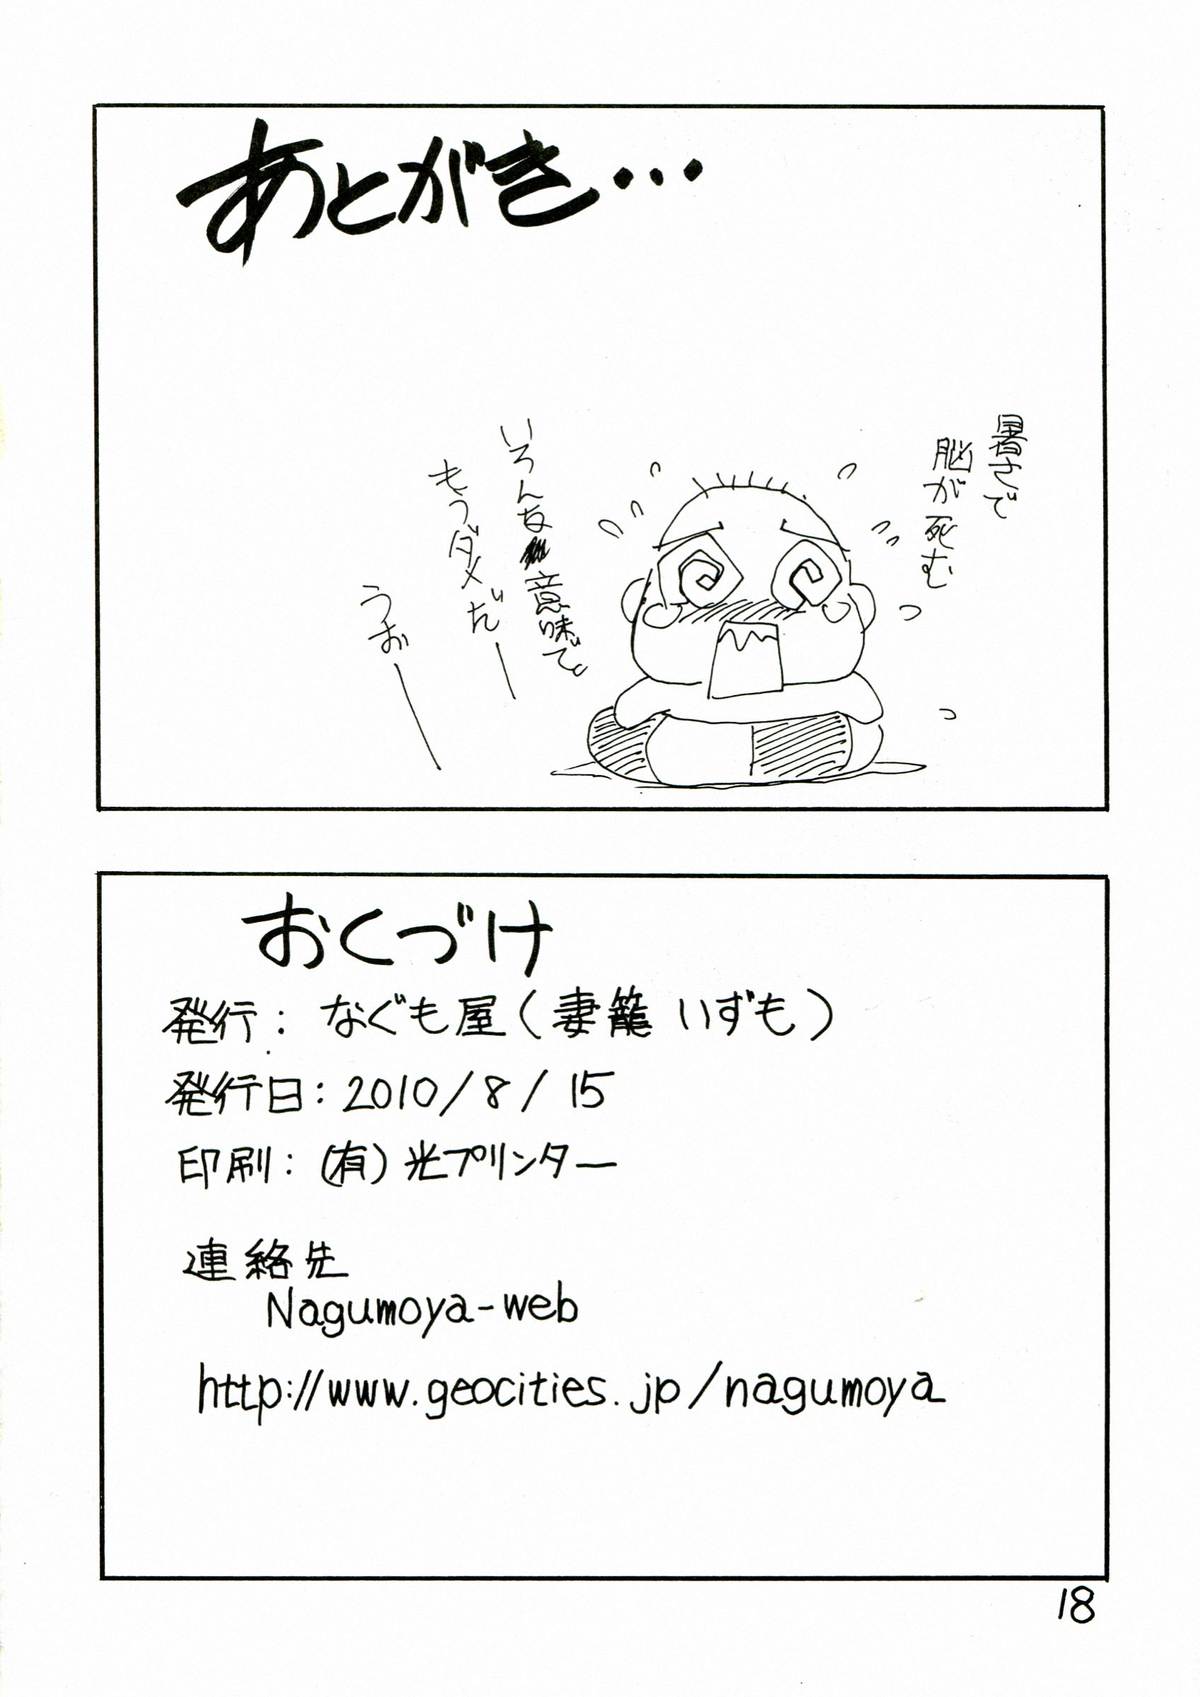 あとがき・・・
暑さで
脳が死む
いろんな意味で
もうダメだー
うおー
おくづけ
発行：なぐも屋（妻籠 いずも）
発行日：2010/8/15
印刷：（有）光プリンター
連絡先
Nagumoya-web
http://www.geocities.jp/nagumoya
18